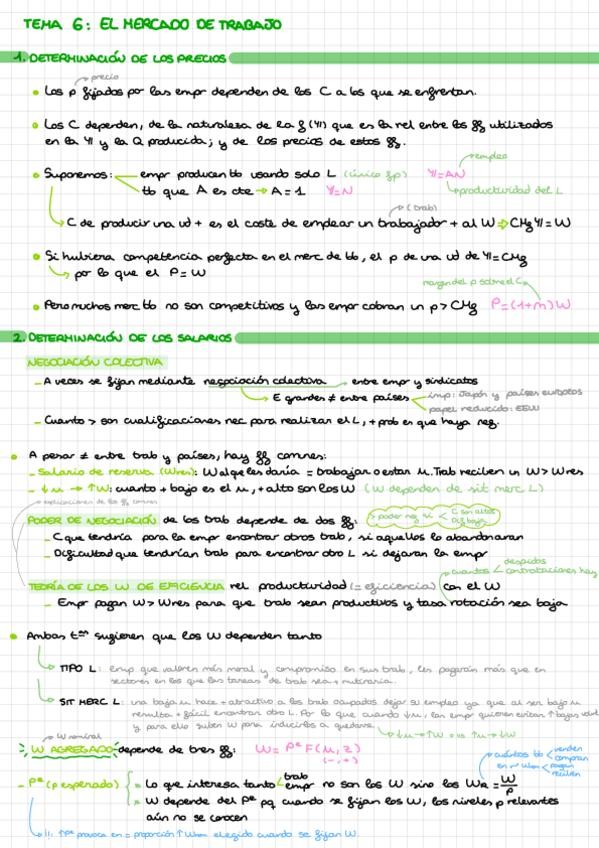 TEMA 6: EL MERCADO DE TRABAJO
1. DETERMINACIÓN DE LOS PRECIOS
precio
Los p fijados por las empr dependen de los C a los que se enfrentan.
Los C dependen, de la naturaleza de la f(Y) que es la rel entre los ff utilizados
en la Y y la Q producida; y de los precios de estos ff.
empleo
Suponemos: empr producen bb usando solo L (único fp) Y=AN
tb que A es cte → A=1 Y=N
productividad del L
(trab)
C de producir una ud + es el coste de emplear un trabajador + al W ⇒ CMg Y = W
Si hubiera competencia perfecta en el merc de bb, el p de una ud de Y = CMg
por lo que el P=W
margen del p sobre el C
Pero muchos merc bb no son competitivos y las empr cobran un p > CMg P=(1+m)W
2. DETERMINACIÓN DE LOS SALARIOS
NEGOCIACIÓN COLECTIVA
- A veces se fijan mediante negociación colectiva entre empr y sindicatos
E grandes ≠ entre países imp: Japón y países europeos
papel reducido: EEUU
- Cuanto > son cualificaciones nec para realizar el L, + prob es que haya neg.
A pesar ≠ entre trab y países, hay ff comnes:
- Salario de reserva (Wres): W al que les daría = trabajar o estar u. Trab reciben un W > Wres
- ↓u → ↑W: cuanto + bajo es el u, + alto son los W (W dependen de sit merc L)
explicaciones de los ff comnes
PODER DE NEGOCIACIÓN de los trab depende de dos ff: > poder neg si < C son altos
Dif baja
- C que tendría para la empr encontrar otros trab, si aquellos lo abandonaran
- Dificultad que tendrían trab para encontrar otro L si dejaran la empr
despidos
cuantos < contrataciones hay
TEORÍA DE LOS W DE EFICIENCIA rel productividad (= eficiencia) con el W
- Empr pagan W > Wres para que trab sean productivos y tasa rotación sea baja
Ambas tªs sugieren que los W dependen tanto
TIPO L: emp. que valoren más moral y compromiso en sus trab, les pagarán más que en
sectores en los que las tareas de trab sea + rutinaria.
SIT MERC L: una baja u hace + atractivo a los trab ocupados dejar su empleo ya que al ser bajo u
resulta + fácil encontrar otro L. Por lo que cuando ↓u, las empr quieren evitar ↑ bajas volunt
y para ello suben W para inducirlos a quedarse.
↓u → ↑W = ↑u → ↓W
W nominal
W AGREGADO depende de tres ff: W = Pᵉ F(u, z)
(-, +)
cuántos bb < venden
compran
en nº W bb < pagan
reciben
- Pᵉ (p esperado) = Lo que interesa tanto trab empr no son los W sino los WR = W/P
= W depende del Pᵉ pq cuando se fijan los W, los niveles p relevantes
aún no se conocen
!!: ↑Pᵉ provoca en = proporción ↑W elegido cuando se fijan W.